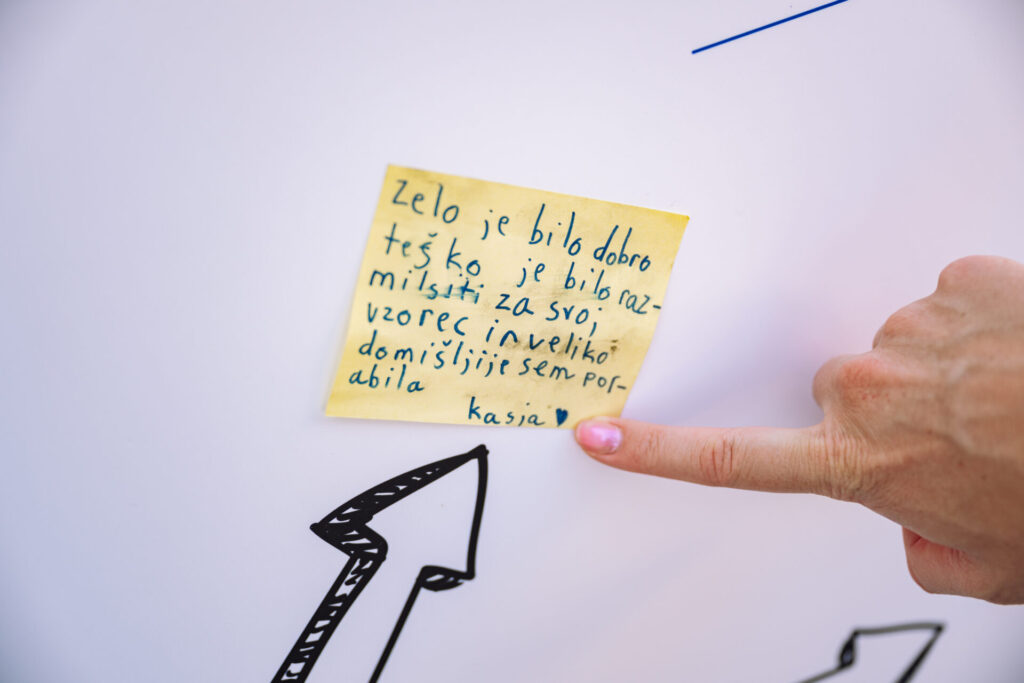 zelo je bilo dobro
teško je bilo raz-
milsiti za svoj
vzorec in veliko
domišljije sem por-
abila
kasja ♥